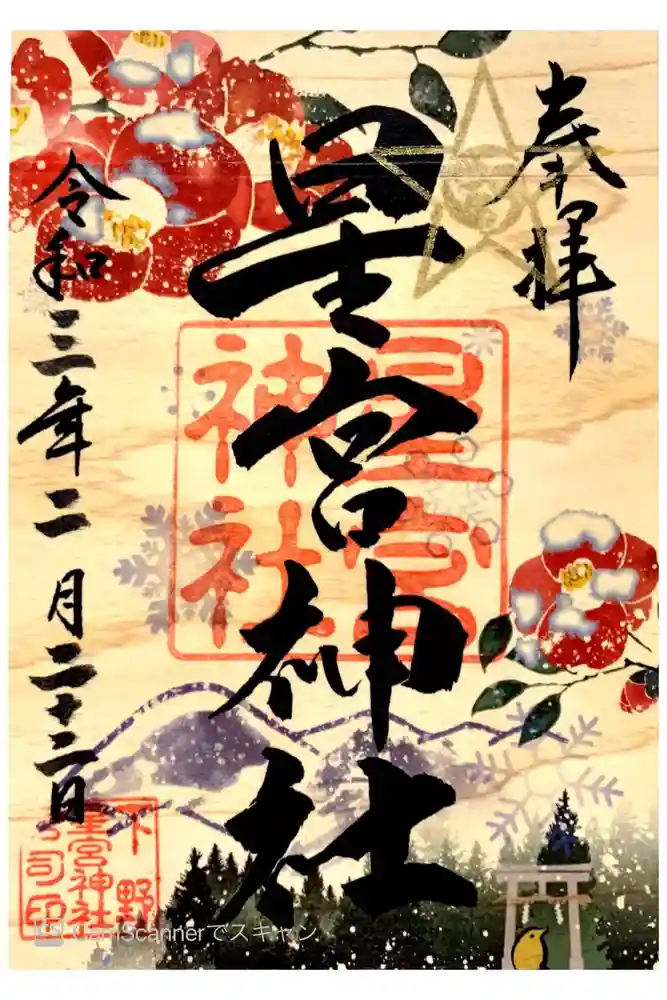 奉拝
星宮神社
星宮
神社
令和三年二月二十二日
下野
星宮神社
宮司印
CamScannerでスキャン